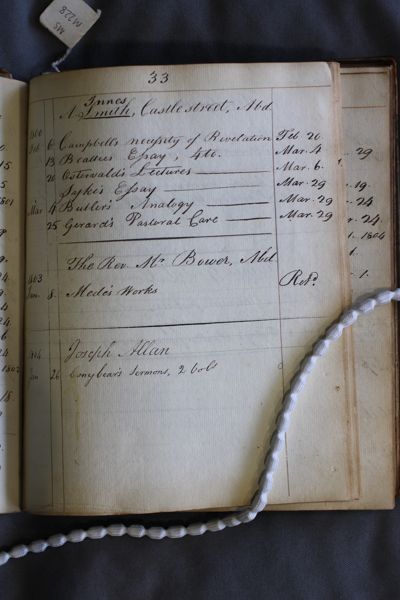 MS
M 228
33
Innes
A. Smith, Castle street, Abd
1800
Feb 6 Campbell's necessity of Revelation Feb. 20.
13 Beattie's Essay, 4to. Mar. 4
20 Osterwald's Lectures Mar. 6.
Syke's Essay Mar. 29
Mar 4 Butler's Analogy Mar. 29
25 Gerard's Pastoral Care Mar. 29
The Rev. Mr. Bower, Abd
1803
Jan. 8 Mede's Works Retd.
Joseph Allan
Jan 26 Conybear's Sermons, 2 vols
29
19
24
24
1804
1